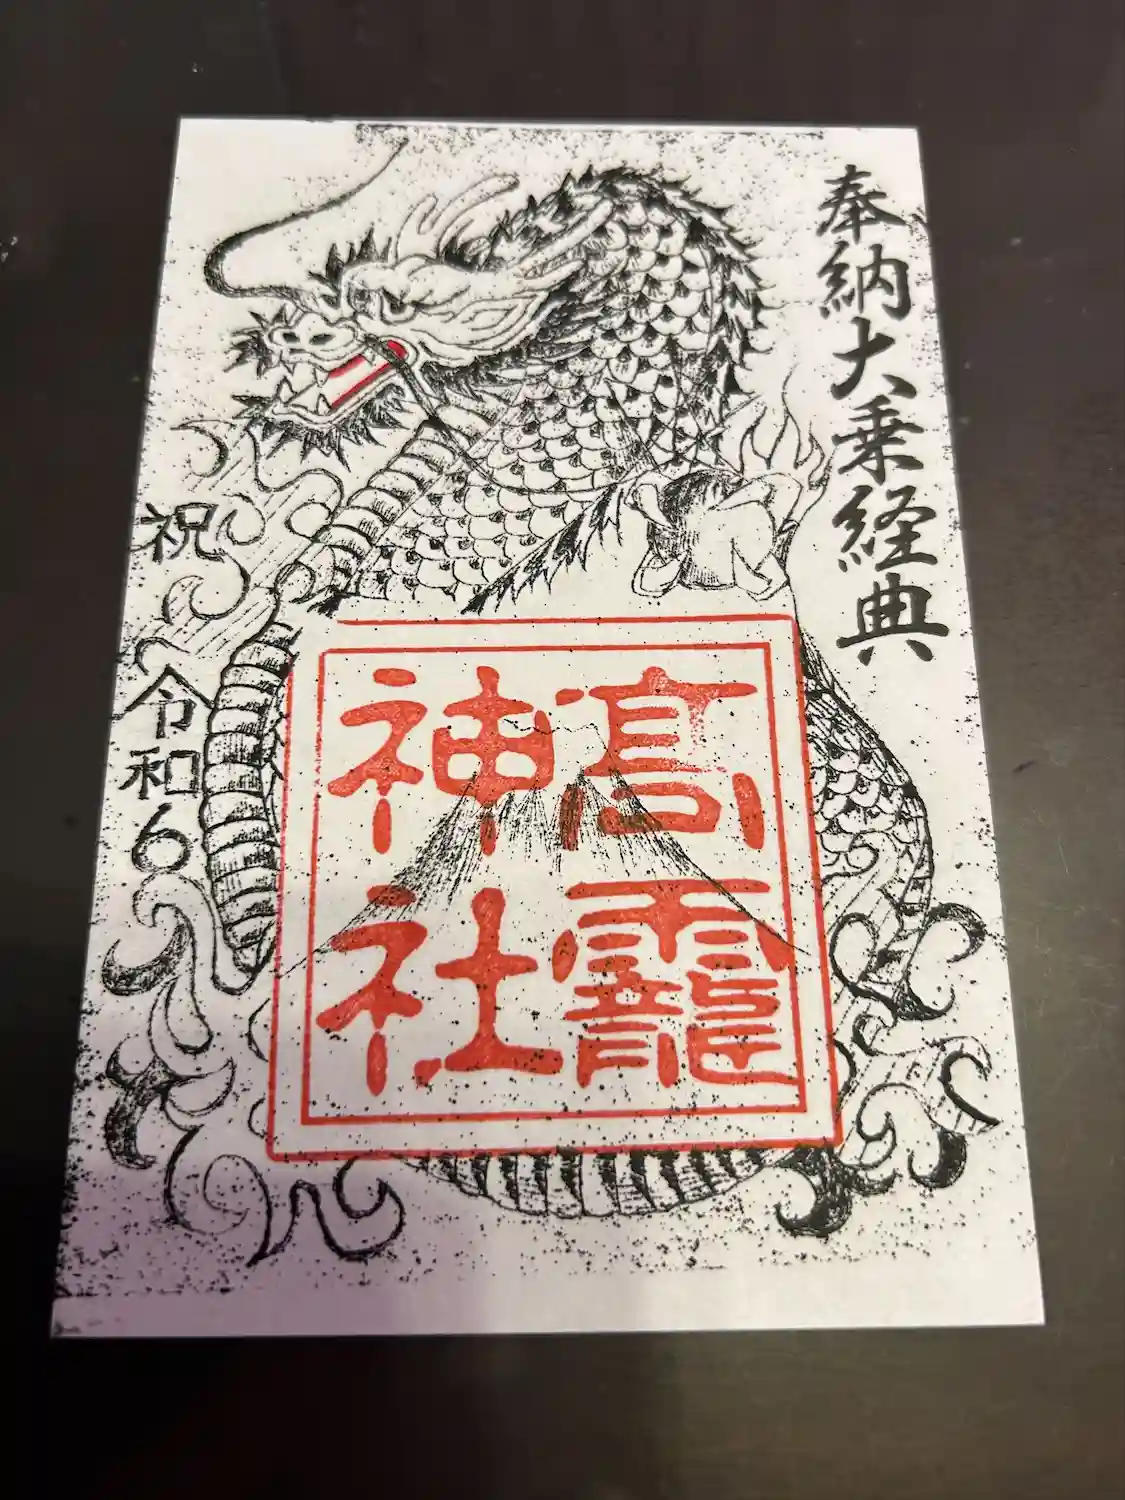 奉納大乗経典
髙靇
神社
祝
令和6